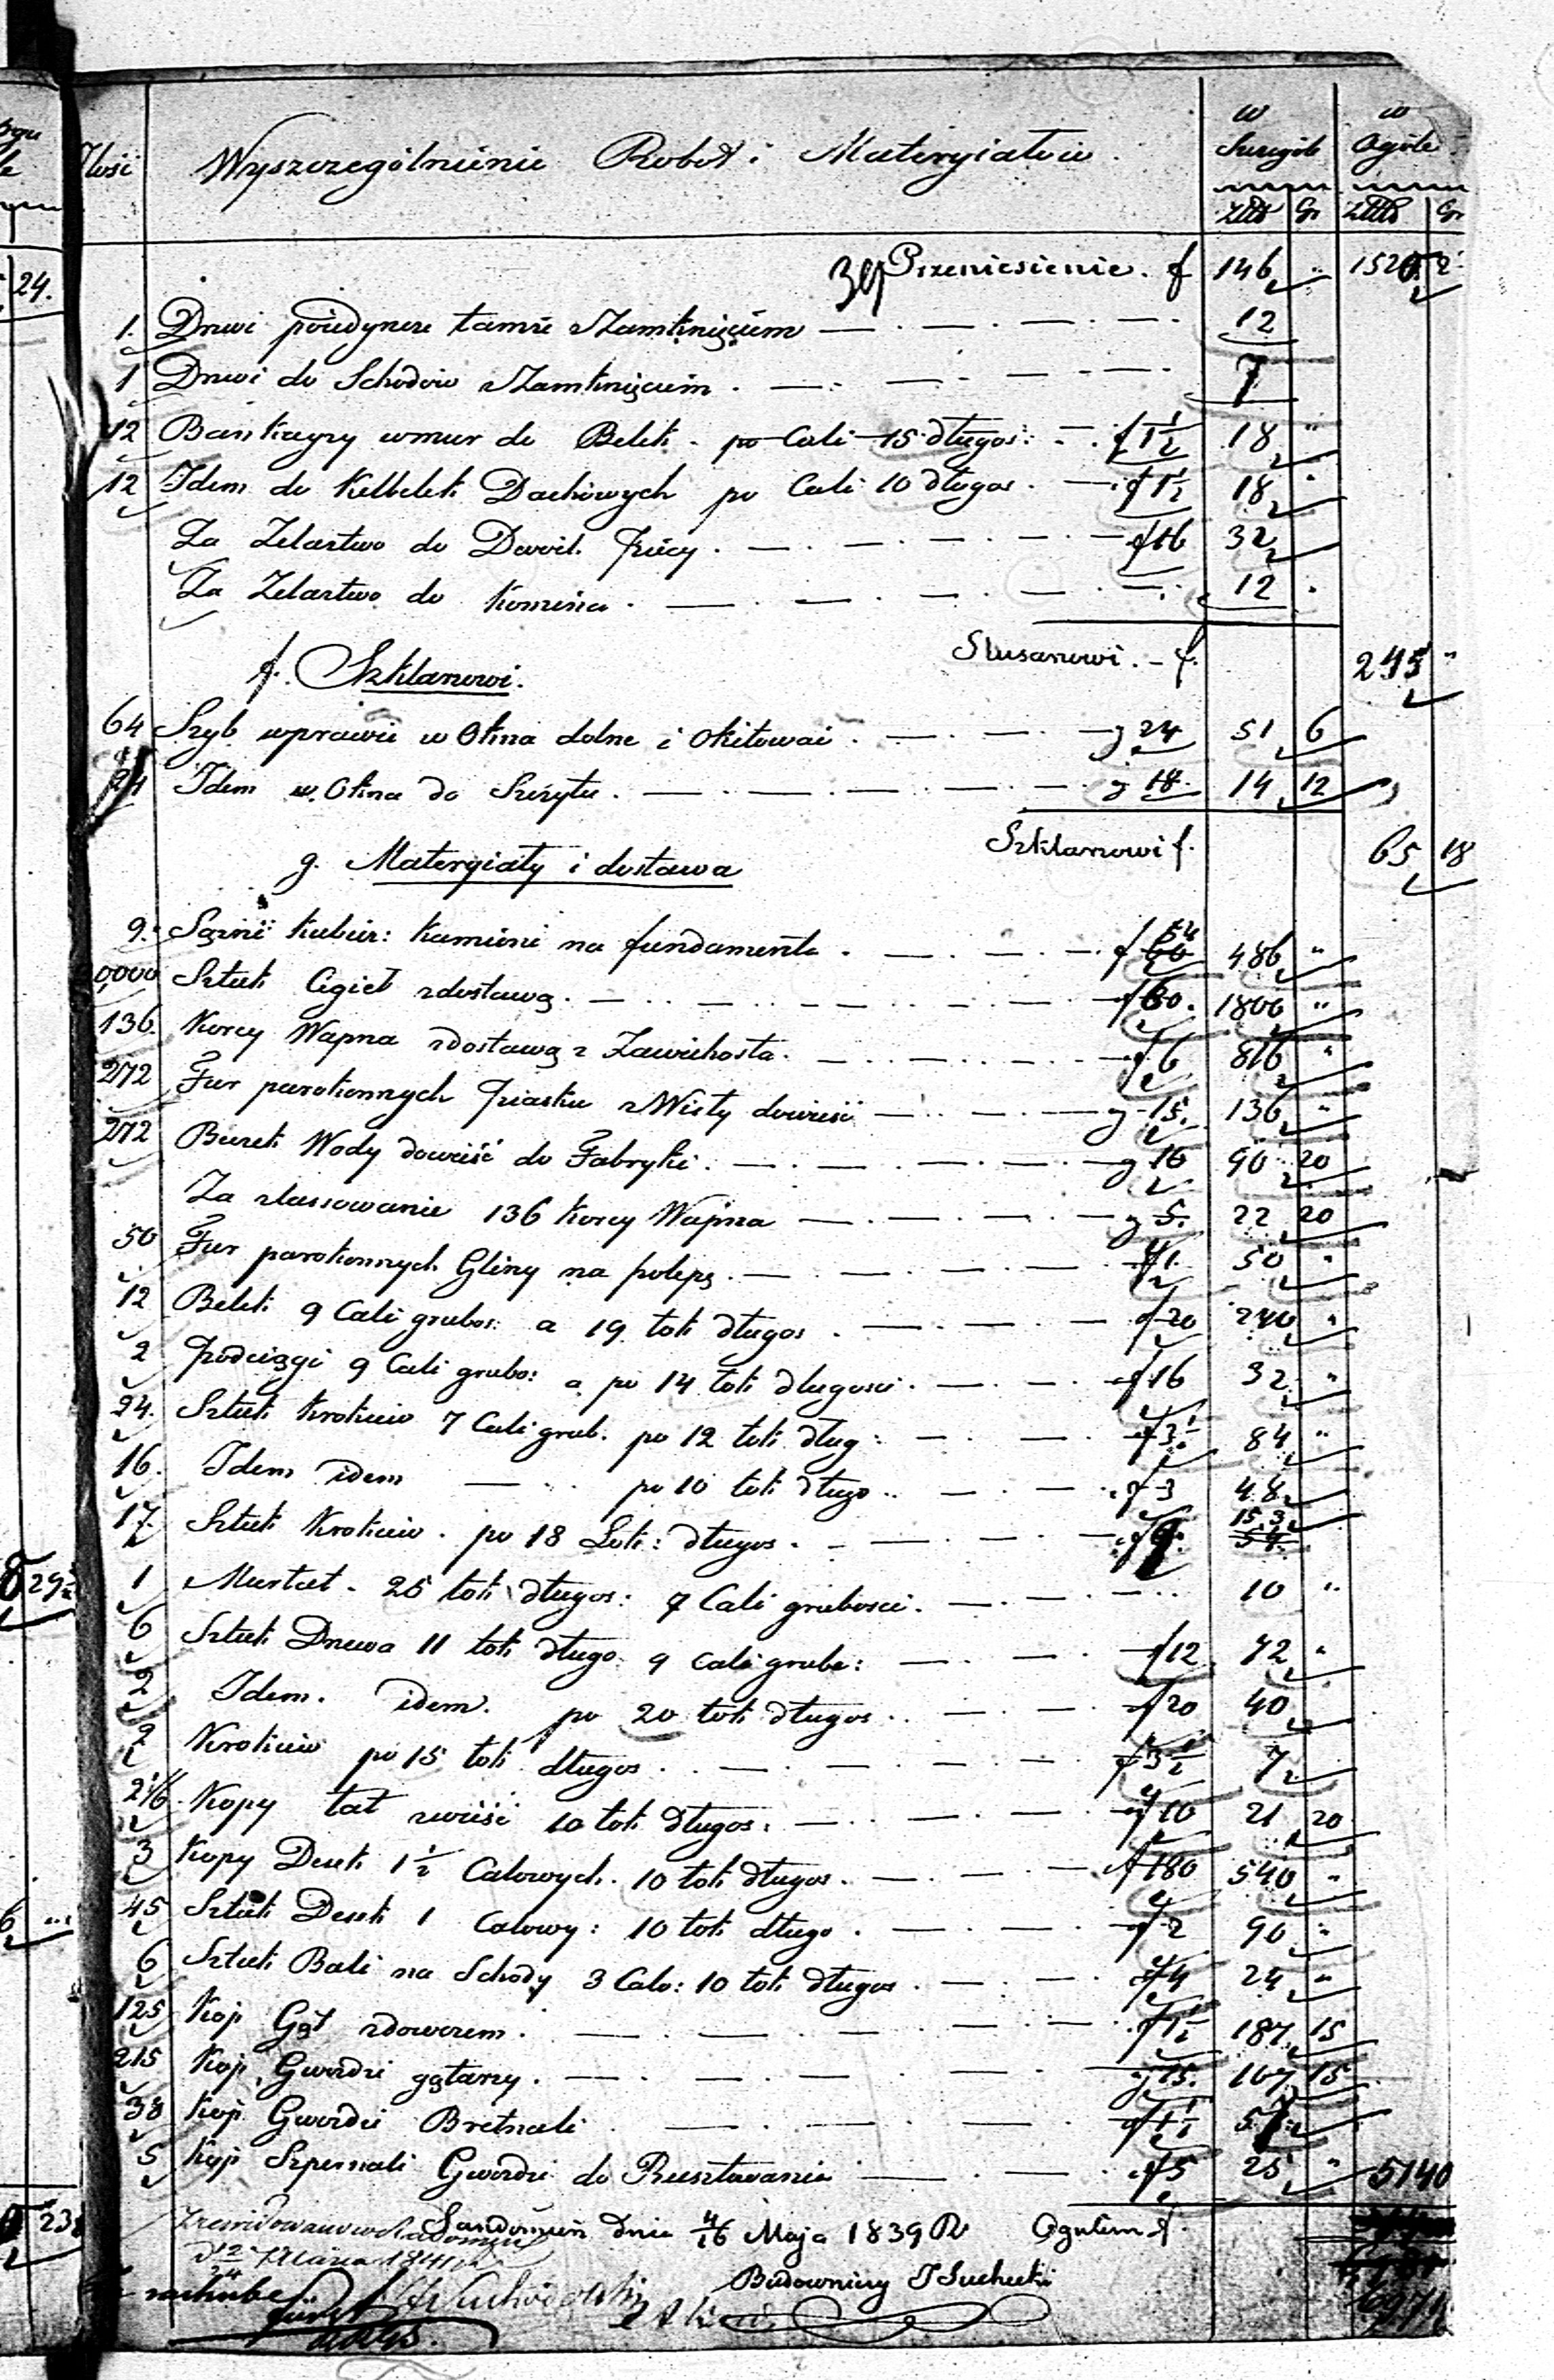 Ilość Wyszczególnienie Robot i Materyiałów w Szczególe w Ogóle
Złtb Gr Złtb Gr
Przeniesienie. f 146 " 152 2
1. Drzwi poiedyncze tamże z Zamknięciem 12
1 Drzwi do Schodów z Zamknięciem. 7
12 Bankayzy wmur do Belek. po Cali 15 długos: f 1½ 18 "
12 Idem do Kelbelek Dachowych po Cali 10 długos. f 1½ 18 "
Za Zelastwo do f 16 32
Za Zelastwo do Komina. 12 "
Slusarzowi. f. 245 "
f. Szklarzowi.
64 Szyb wprawić w Okna dolne i Okitować. g 24 51 6
24 Idem w. Okna do Szczytu. g 18. 14 12
Szklarzowi f. 65 18
g. Materyiały i dostawa
9. Sążni kubicz: kamieni na fundamenta. f 54 486 "
0,000 Sztuk Cegieł z dostawą. f 60. 1800 "
136. Korcy Wapna z dostawą z Zawichosta. f 6 816 "
272 Fur parokonnych Piasku z Wisły dowieść g 15. 136 "
272 Beczek Wody dowieść do Fabryki. g 10 90 20
Za zlassowanie 136 Korcy Wapna g 5. 22 20
50 Fur parokonnych Gliny na polepę. f 1. 50 "
12 Belek 9 Cali grubos: a 19 łok długos. f 20 240 "
2 Podciągi 9 Cali grubo: a po 14 łok długości. f 16 32 "
24. Sztuk Krokwiw 7 Cali grub. po 12 łok dług: f 3½ 84 "
16. Idem idem po 10 łok długo.. f 3 48
17. Sztuk Krokwiw. po 18 Łok: długos. f 9. 153
1 Murłat. 25 łok długos: 7 Cali grubości. 10 "
6 Sztuk Drzewa 11 łok długo. 9 cali grube: f 12 72 "
2 Idem. idem. po 20 łok długos.. f 20 40
2 Krokwiw po 15 łok długos. f 3½ 7
2 1/6 Kopy łat zwieść 10 łok długos. f 10 21 20
3 Kopy Desek 1½ Calowych. 10 łok długos. f 180 540 "
45 Sztuk Desek 1 Calowy: 10 łok długo. f 2 90 "
6 Sztuk Bali na Schody 3 Calo: 10 łok długos. f 4 24 "
125 Kop Gąt z dowozem. f 1½ 187 15
215 Kop Gwozdzi gątarzy. g 15. 107 15
38 Kop Gwozdzi Bretnali f 1½ 57
5 Kop Szpernali Gwozdzi do Rusztowania f 5 25 " 5140
Sandomierz dnia 4/16 Maja 1839 R Ogułem f.
1841
Budowniczy J Suchecki